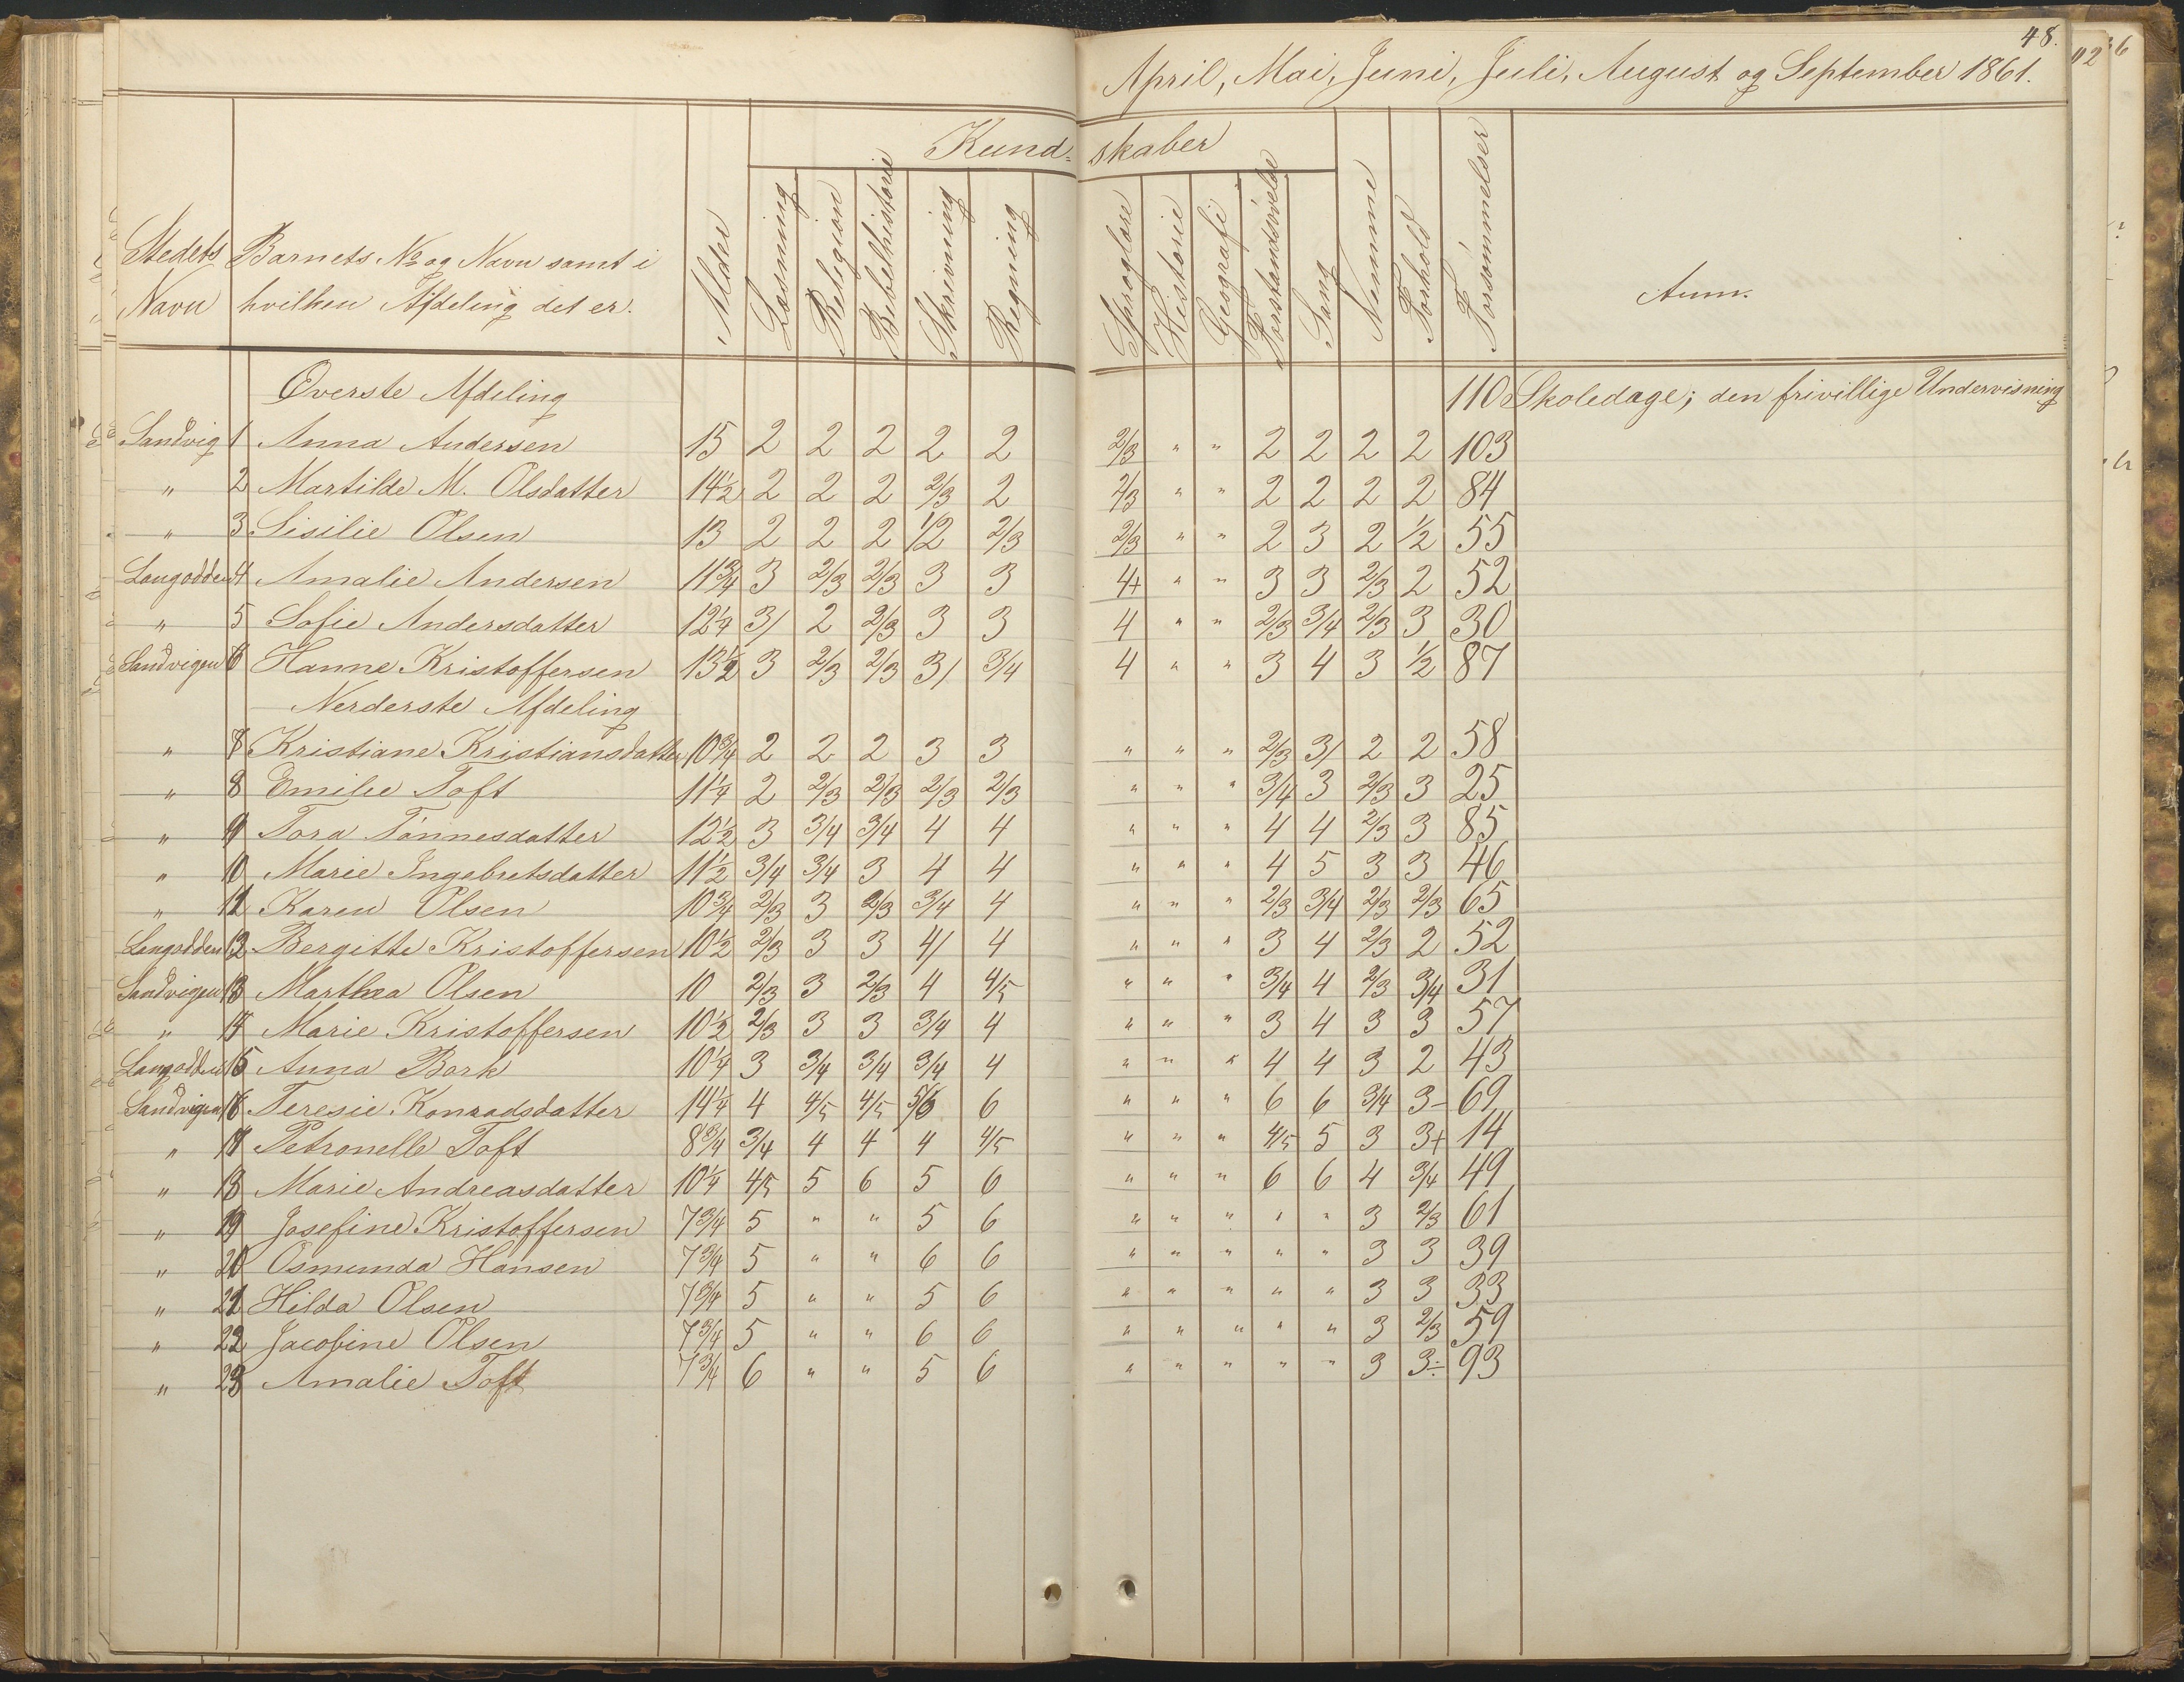 48.
April, Mai, Juni, Juli, August og September 1861.
Kund- skaber
Stedets Navn
Barnets No og Navn samt i hvilken Afdeling det er.
Alder
Læsning
Religion
Bibelhistorie
Skrivning
Regning
Sproglære
Historie
Geografi
Forstandsøvelse
Sang
Nemme
Forhold
Forsømmelser
Anm.
Øverste Afdeling 110 Skoledage; den frivillige Undervisning
Sandvig 1 Anna Andersen 15 2 2 2 2 2 2/3 " " 2 2 2 2 103
" 2 Martilde M. Olsdatter 14½ 2 2 2 2/3 2 2/3 " " 2 2 2 2 84
" 3 Sisilie Olsen 13 2 2 2 1/2 2/3 2/3 " " 2 3 2 1/2 55
Langodden 4 Amalie Andersen 11¾ 3 2/3 2/3 3 3 4+ " " 3 3 2/3 2 52
" 5 Sofie Andersdatter 12¼ 3/ 2 2/3 3 3 4 " " 2/3 3/4 2/3 3 30
Sandvigen 6 Hanne Kristoffersen 13½ 3 2/3 2/3 3/ 3/4 4 " " 3 4 3 1/2 87
Nerderste Afdeling
" 7 Kristiane Kristiansdatter 10¾ 2 2 2 3 3 " " " 2/3 3/ 2 2 58
" 8 Emilie Toft 11¼ 2 2/3 2/3 2/3 2/3 " " " 3/4 3 2/3 3 25
" 9 Tora Tønnesdatter 12½ 3 3/4 3/4 4 4 " " " 4 4 2/3 3 85
" 10 Marie Ingebretsdatter 11½ 3/4 3/4 3 4 4 " " " 4 5 3 3 46
" 11 Karen Olsen 10¾ 2/3 3 2/3 3/4 4 " " " 2/3 3/4 2/3 2/3 65
Langodden 12 Bergitte Kristoffersen 10½ 2/3 3 3 4/ 4 " " " 3 4 2/3 2 52
Sandvigen 13 Marthea Olsen 10 2/3 3 2/3 4 4/5 " " " 3/4 4 2/3 3/4 31
" 14 Marie Kristoffersen 10½ 2/3 3 3 3/4 4 " " " 3 4 3 3 57
Langodden 15 Anna Bork 10¼ 3 3/4 3/4 3/4 4 " " " 4 4 3 2 43
Sandvigen 16 Teresie Konradsdatter 14¼ 4 4/5 4/5 5/6 6 " " " 6 6 3/4 3- 69
" 17 Petronelle Toft 8¾ 3/4 4 4 4 4/5 " " " 4/5 5 3 3+ 14
" 18 Marie Andreasdatter 10¼ 4/5 5 6 5 6 " " " 6 6 4 3/4 49
" 19 Josefine Kristoffersen 7¾ 5 " " 5 6 " " " " " 3 2/3 61
" 20 Osmunda Hansen 7¾ 5 " " 6 6 " " " " " 3 3 39
" 21 Hilda Olsen 7¾ 5 " " 5 6 " " " " " 3 3 33
" 22 Jacobine Olsen 7¾ 5 " " 6 6 " " " " " 3 2/3 59
" 23 Amalie Toft 7¾ 6 " " 5 6 " " " " " 3 3÷ 93